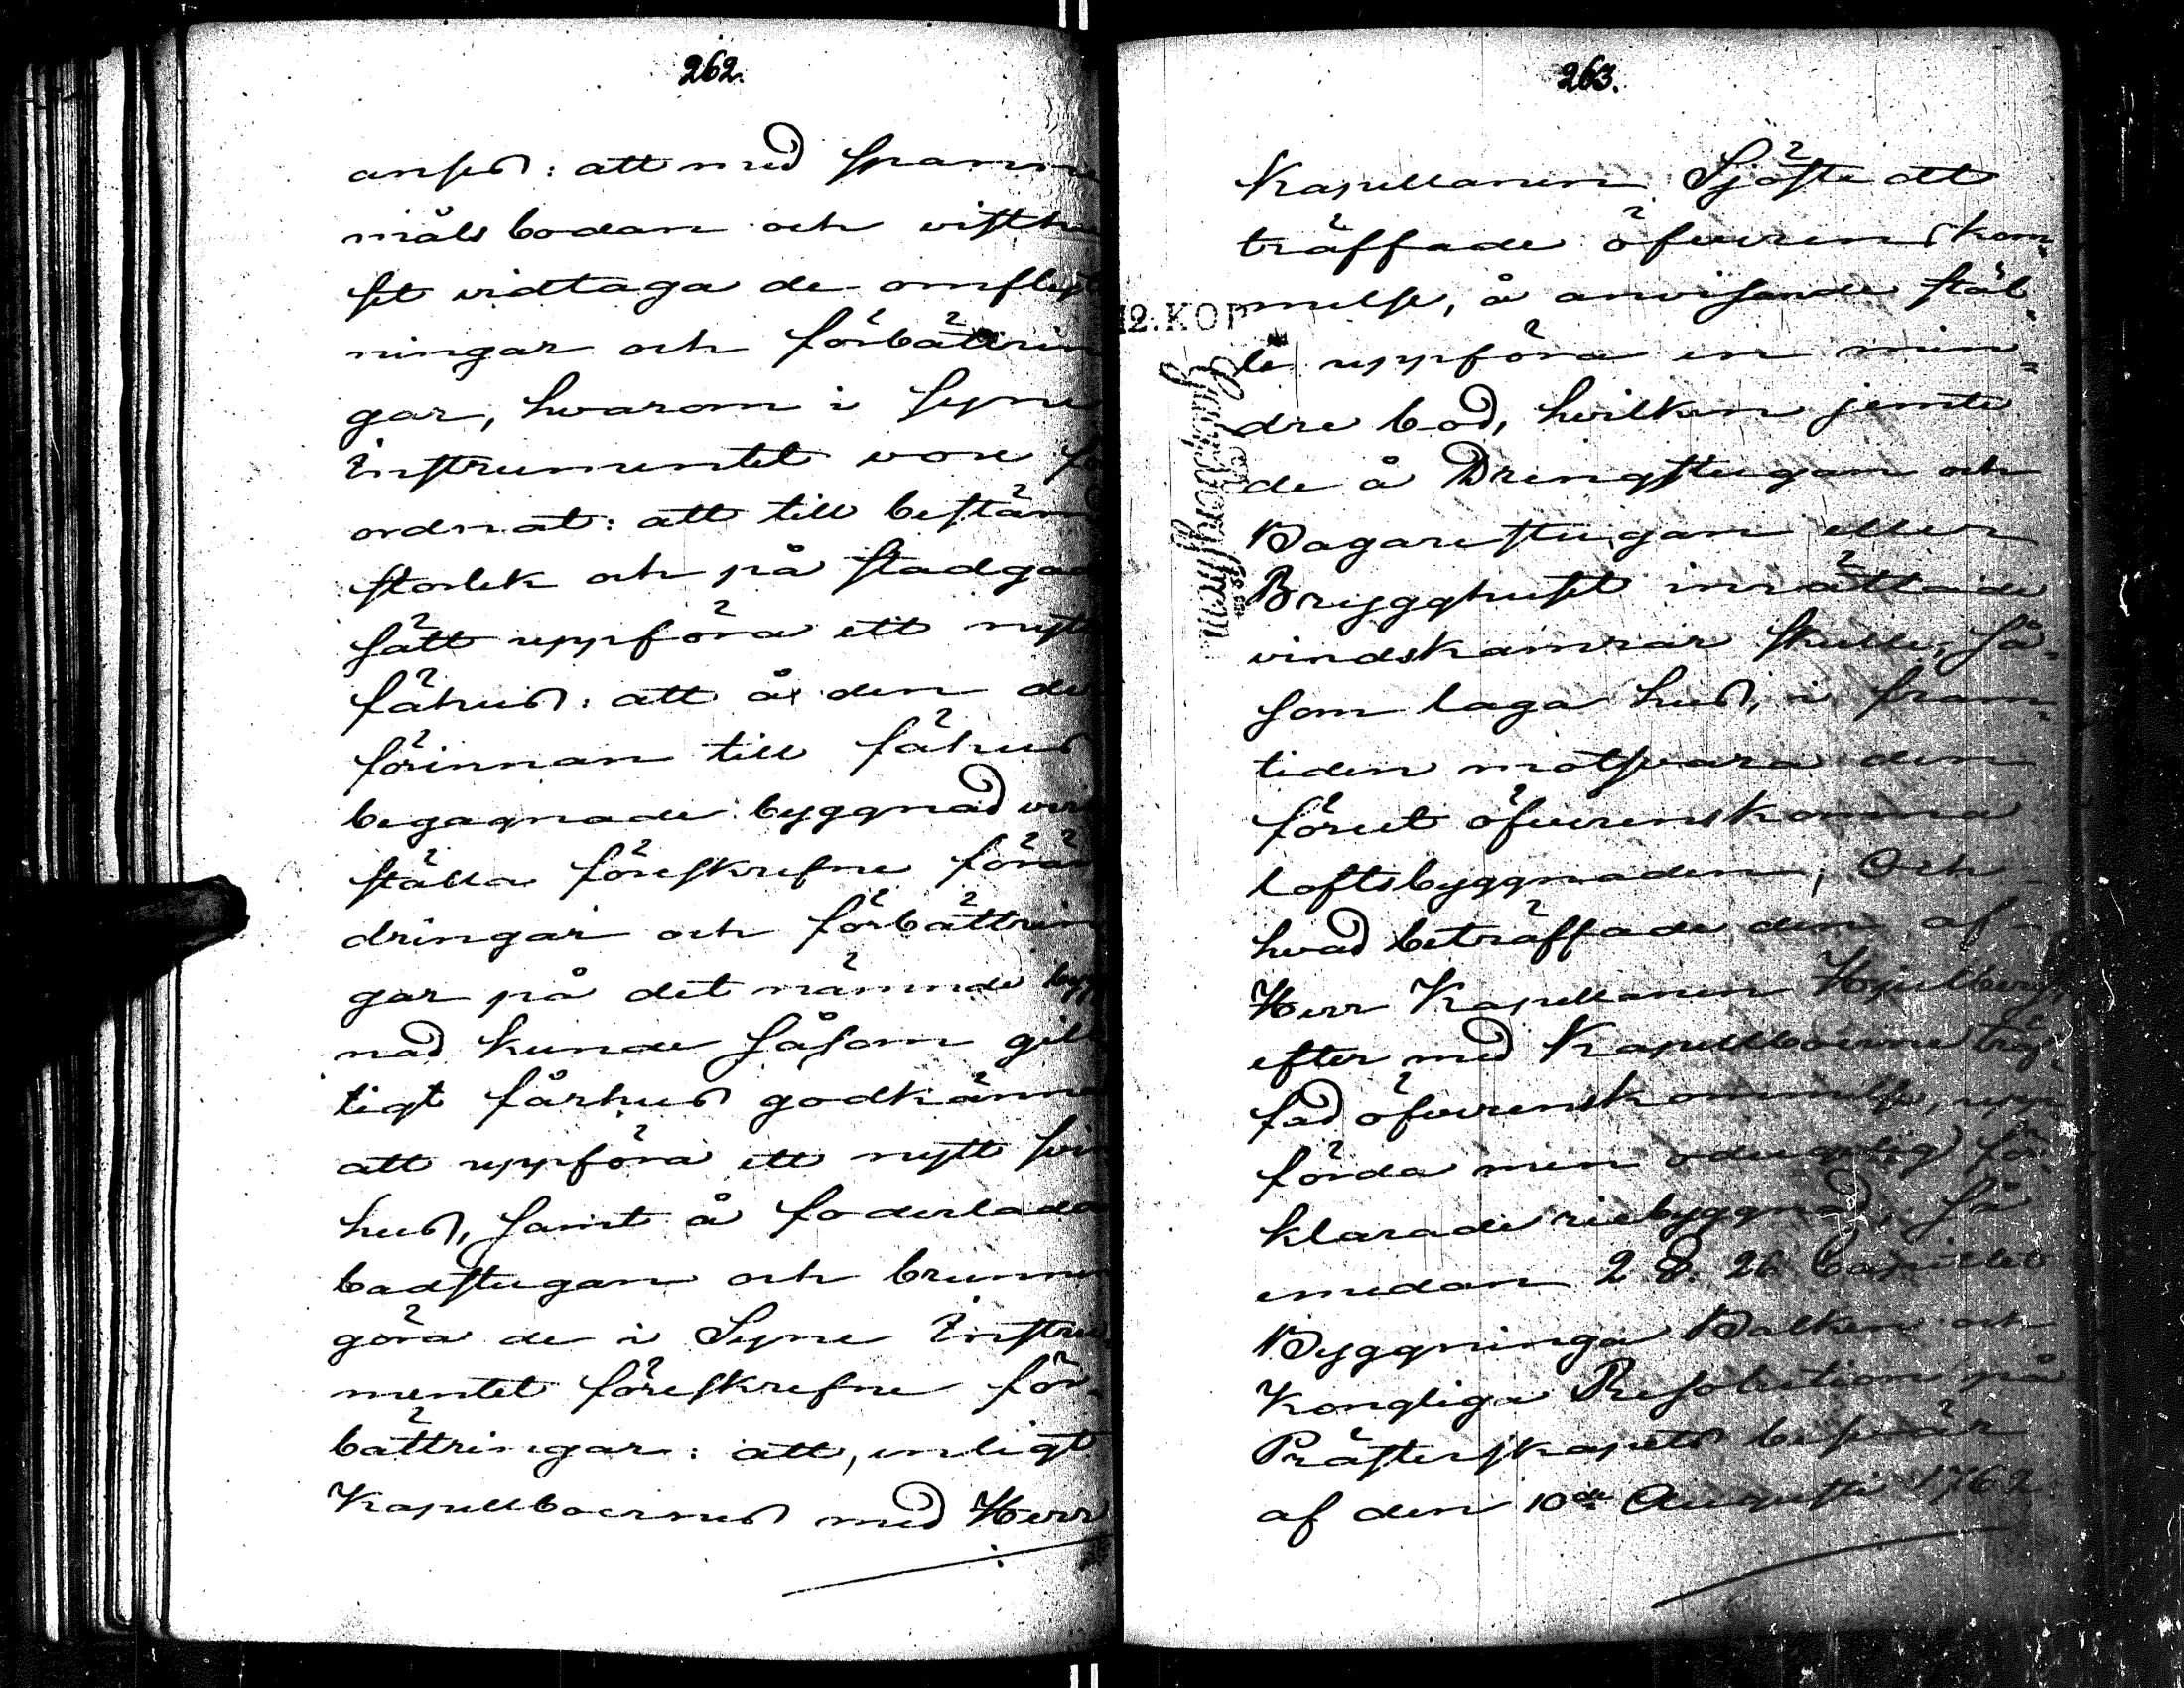 262.
anses: att med spanne
måls bodan och visthu
set vidtaga de omflytt
ningar och förbättrin
gar, hvarom i Syne
Instrumentet vore fö
ordnat: att till bestämd
storlek och på stadgad
sätt uppföra ett nytt
fähus: att å den de
förinnan till fähus
begagnade byggnad verk
ställa föreskrefne förän
dringar och förbättrin
gar på det nämnde bygg
nad kunde såsom gil
tigt fårhus godkänna
att uppföra ett nytt svin
hus, samt å foderlada
badstugan och brunnen
göra de i Syne Instru
mentet föreskrefne för-
bättringar: att, enligt
Kapellboernes med Herr
263.
Kapellanen Sjöstedt
träffade öfverenskom-
melse, å anvisande stäl-
le uppföra en min-
dre bod, hvilken jemte
de å Drengstugan och
Bagarestugan eller
Brygghuset inrättade
vindskamrar skulle, så-
som laga hus, i fram-
tiden motsvara den
förut öfverenskomna
loftsbyggnaden; Och
hvad beträffade den af
Herr Kapellanen Hjellberg,
efter med Kapellboerne träf-
fad öfverenskommelse, upp
förda men oduglig för-
klarade riebyggnad, så
emedan 2 §. 26 Capitlet
Byggninga Balken och
Kongliga Resolution på
Prästerskapets besvär
af den 10de Augusti 1762
12. KOP